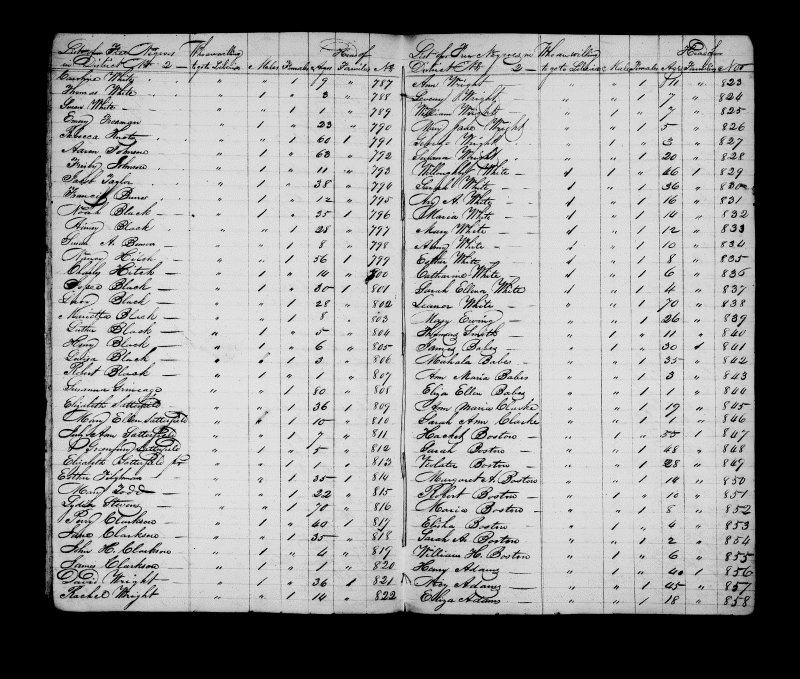 List of Free Negroes in District No 2 Who are willing to go to Liberia Males Females Ages Head of Families No
Caroline White " " 1 19 " 787
Thomas White " 1 " 3 " 788
White " 1 " 1 " 789
Emory " 1 " 23 " 790
Rebecca " " 1 60 1 791
Aaron Johnson " 1 " 63 " 792
Johnson " 1 " 11 " 793
Jacob Taylor " 1 " 38 " 794
Francis " 1 " 12 " 795
Noah Black " 1 " 35 1 796
Black " " 1 28 " 797
Susan A. " " 1 8 " 798
Hitch " 1 " 56 1 799
Charly Hitch " 1 " 14 " 800
Black " 1 " 30 1 801
Black " " 1 28 " 802
Marietta Black " " 1 8 " 803
Black " 1 " 5 " 804
Henry Black " 1 " 6 " 805
Black " " 3 " 806
Robert Black " 1 " 1 " 807
Susanna " " 1 80 " 808
Elizabeth Satterfield " " 1 36 1 809
Mary Ellen Satterfield " " 1 10 " 810
Ann Satterfield " " 1 7 " 811
Satterfield " 1 " 5 " 812
Elizabeth Satterfield " " 1 1 " 813
Esther Tilghman " " 1 35 1 814
Mary Todd " " 1 22 " 815
Lydia Stevens " " 1 70 " 816
Perry Clarkson " 1 " 40 1 817
Jane Clarkson " " 1 35 " 818
John H. Clarkson " 1 " 4 " 819
James Clarkson " 1 " 1 " 820
David Wright " 1 " 36 1 821
Rachel Wright " " 1 14 " 822
List of Free Negroes in District No 2 Who are willing to go to Liberia Males Females Ages Head of Families No
Ann Wright " " 1 " 823
Wright " 1 " 7 " 824
William Wright " 1 " 7 " 825
Mary Jane Wright " " 1 5 " 826
George Wright " 1 " 3 " 827
Susanna Wright " " 1 20 " 828
Willoughby White 1 " 46 1 829
Sarah White 1 " 36 " 830
A. White 1 " 16 " 831
Maria White 1 " 14 " 832
Mary White 1 " 12 " 833
White 1 " 10 " 834
Esther White 1 " 8 " 835
Catharine White 1 " 6 " 836
Sarah Ellena White 1 " 4 " 837
Leanor White " " 1 70 " 838
Mary Ewing " " 1 26 " 839
Thomas Smith " 1 " 11 " 840
James Bales " 1 " 30 1 841
Mahala Bales " " 1 35 " 842
Ann Maria Bales " " 1 3 " 843
Eliza Ellen Bales " " 1 1 " 844
Ann Maria Clarke " " 1 19 1 845
Sarah Ann Clarke " " 1 1 " 846
Rachel Boston " 55 1 847
Sarah Boston " " 1 48 " 848
Violate Boston " " 1 28 " 849
Margaret A. Boston " " 1 14 " 850
Robert Boston " 1 " 10 " 851
Maria Boston " " 1 8 " 852
Elisha Boston " 1 " 4 " 853
Sarah A. Boston " " 1 2 " 854
William H. Boston " 1 " 6 " 855
Henry Adams " 1 " 40 1 856
Adams " " 1 45 " 857
Eliza Adams " " 1 18 " 858